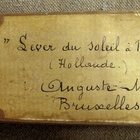 " Lever du soleil à
(Hollande.)
Auguste
Bruxelles